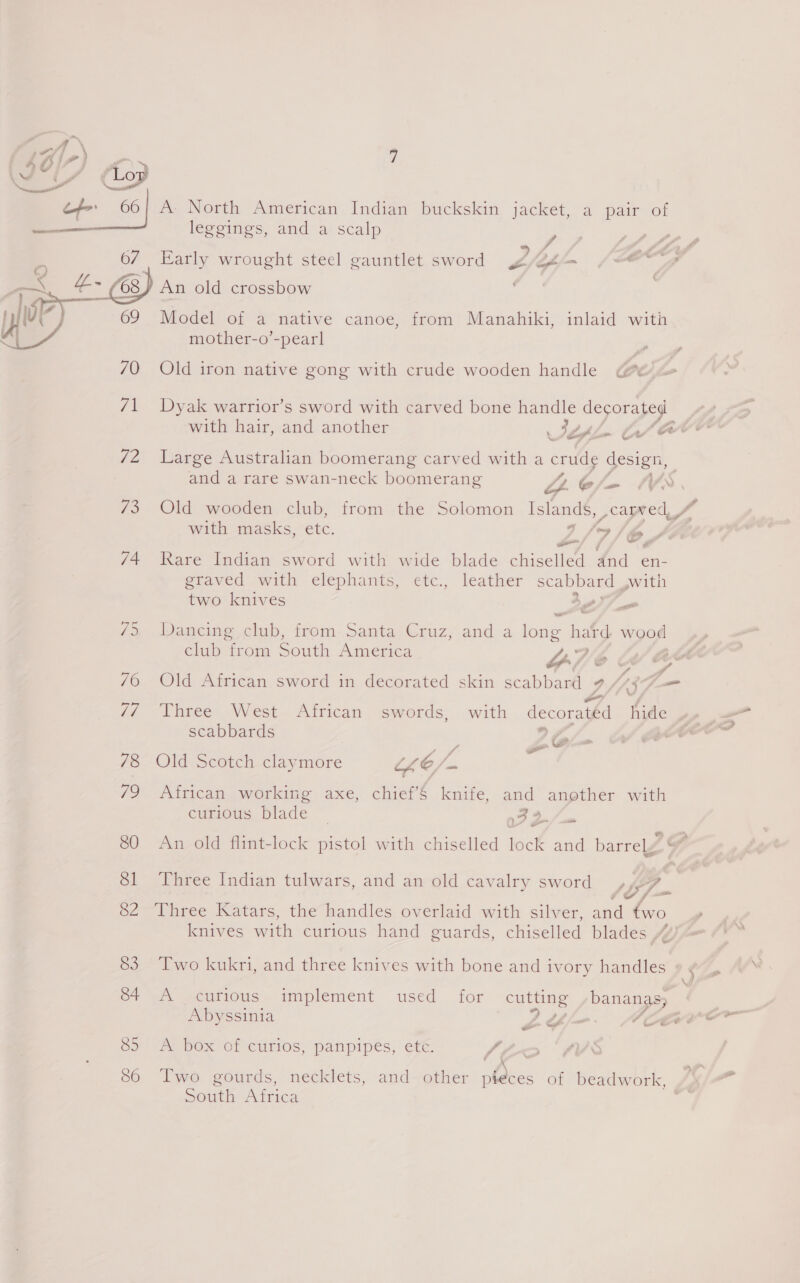 7
Lot
66 A North American Indian buckskin jacket, a pair of
leggings, and a scalp
67 Early wrought steel gauntlet sword
68 An old crossbow
69 Model of a native canoe, from Manahiki, inlaid with
mother-o'-pearl
70 Old iron native gong with crude wooden handle
71 Dyak warrior's sword with carved bone handle decorated
with hair, and another
72 Large Australian boomerang carved with a crude design,
and a rare swan-neck boomerang
73 Old wooden club, from the Solomon Islands, carved
with masks, etc.
74 Rare Indian sword with wide blade chiselled and en-
graved with elephants, etc., leather scabbard with
two knives
75 Dancing club, from Santa Cruz, and a long hard wood
club from South America
76 Old African sword in decorated skin scabbard
77 Three West African swords, with decorated hide
scabbards
78 Old Scotch claymore
79 African working axe, chief's knife, and another with
curious blade
80 An old flint-lock pistol with chiselled lock and barrel
81 Three Indian tulwars, and an old cavalry sword
82 Three Katars, the handles overlaid with silver, and two
knives with curious hand guards, chiselled blades
83 Two kukri, and three knives with bone and ivory handles
84 A curious implement used for cutting bananas,
Abyssinia
85 A box of curios, panpipes, etc.
86 Two gourds, necklets, and other pieces of beadwork,
South Africa